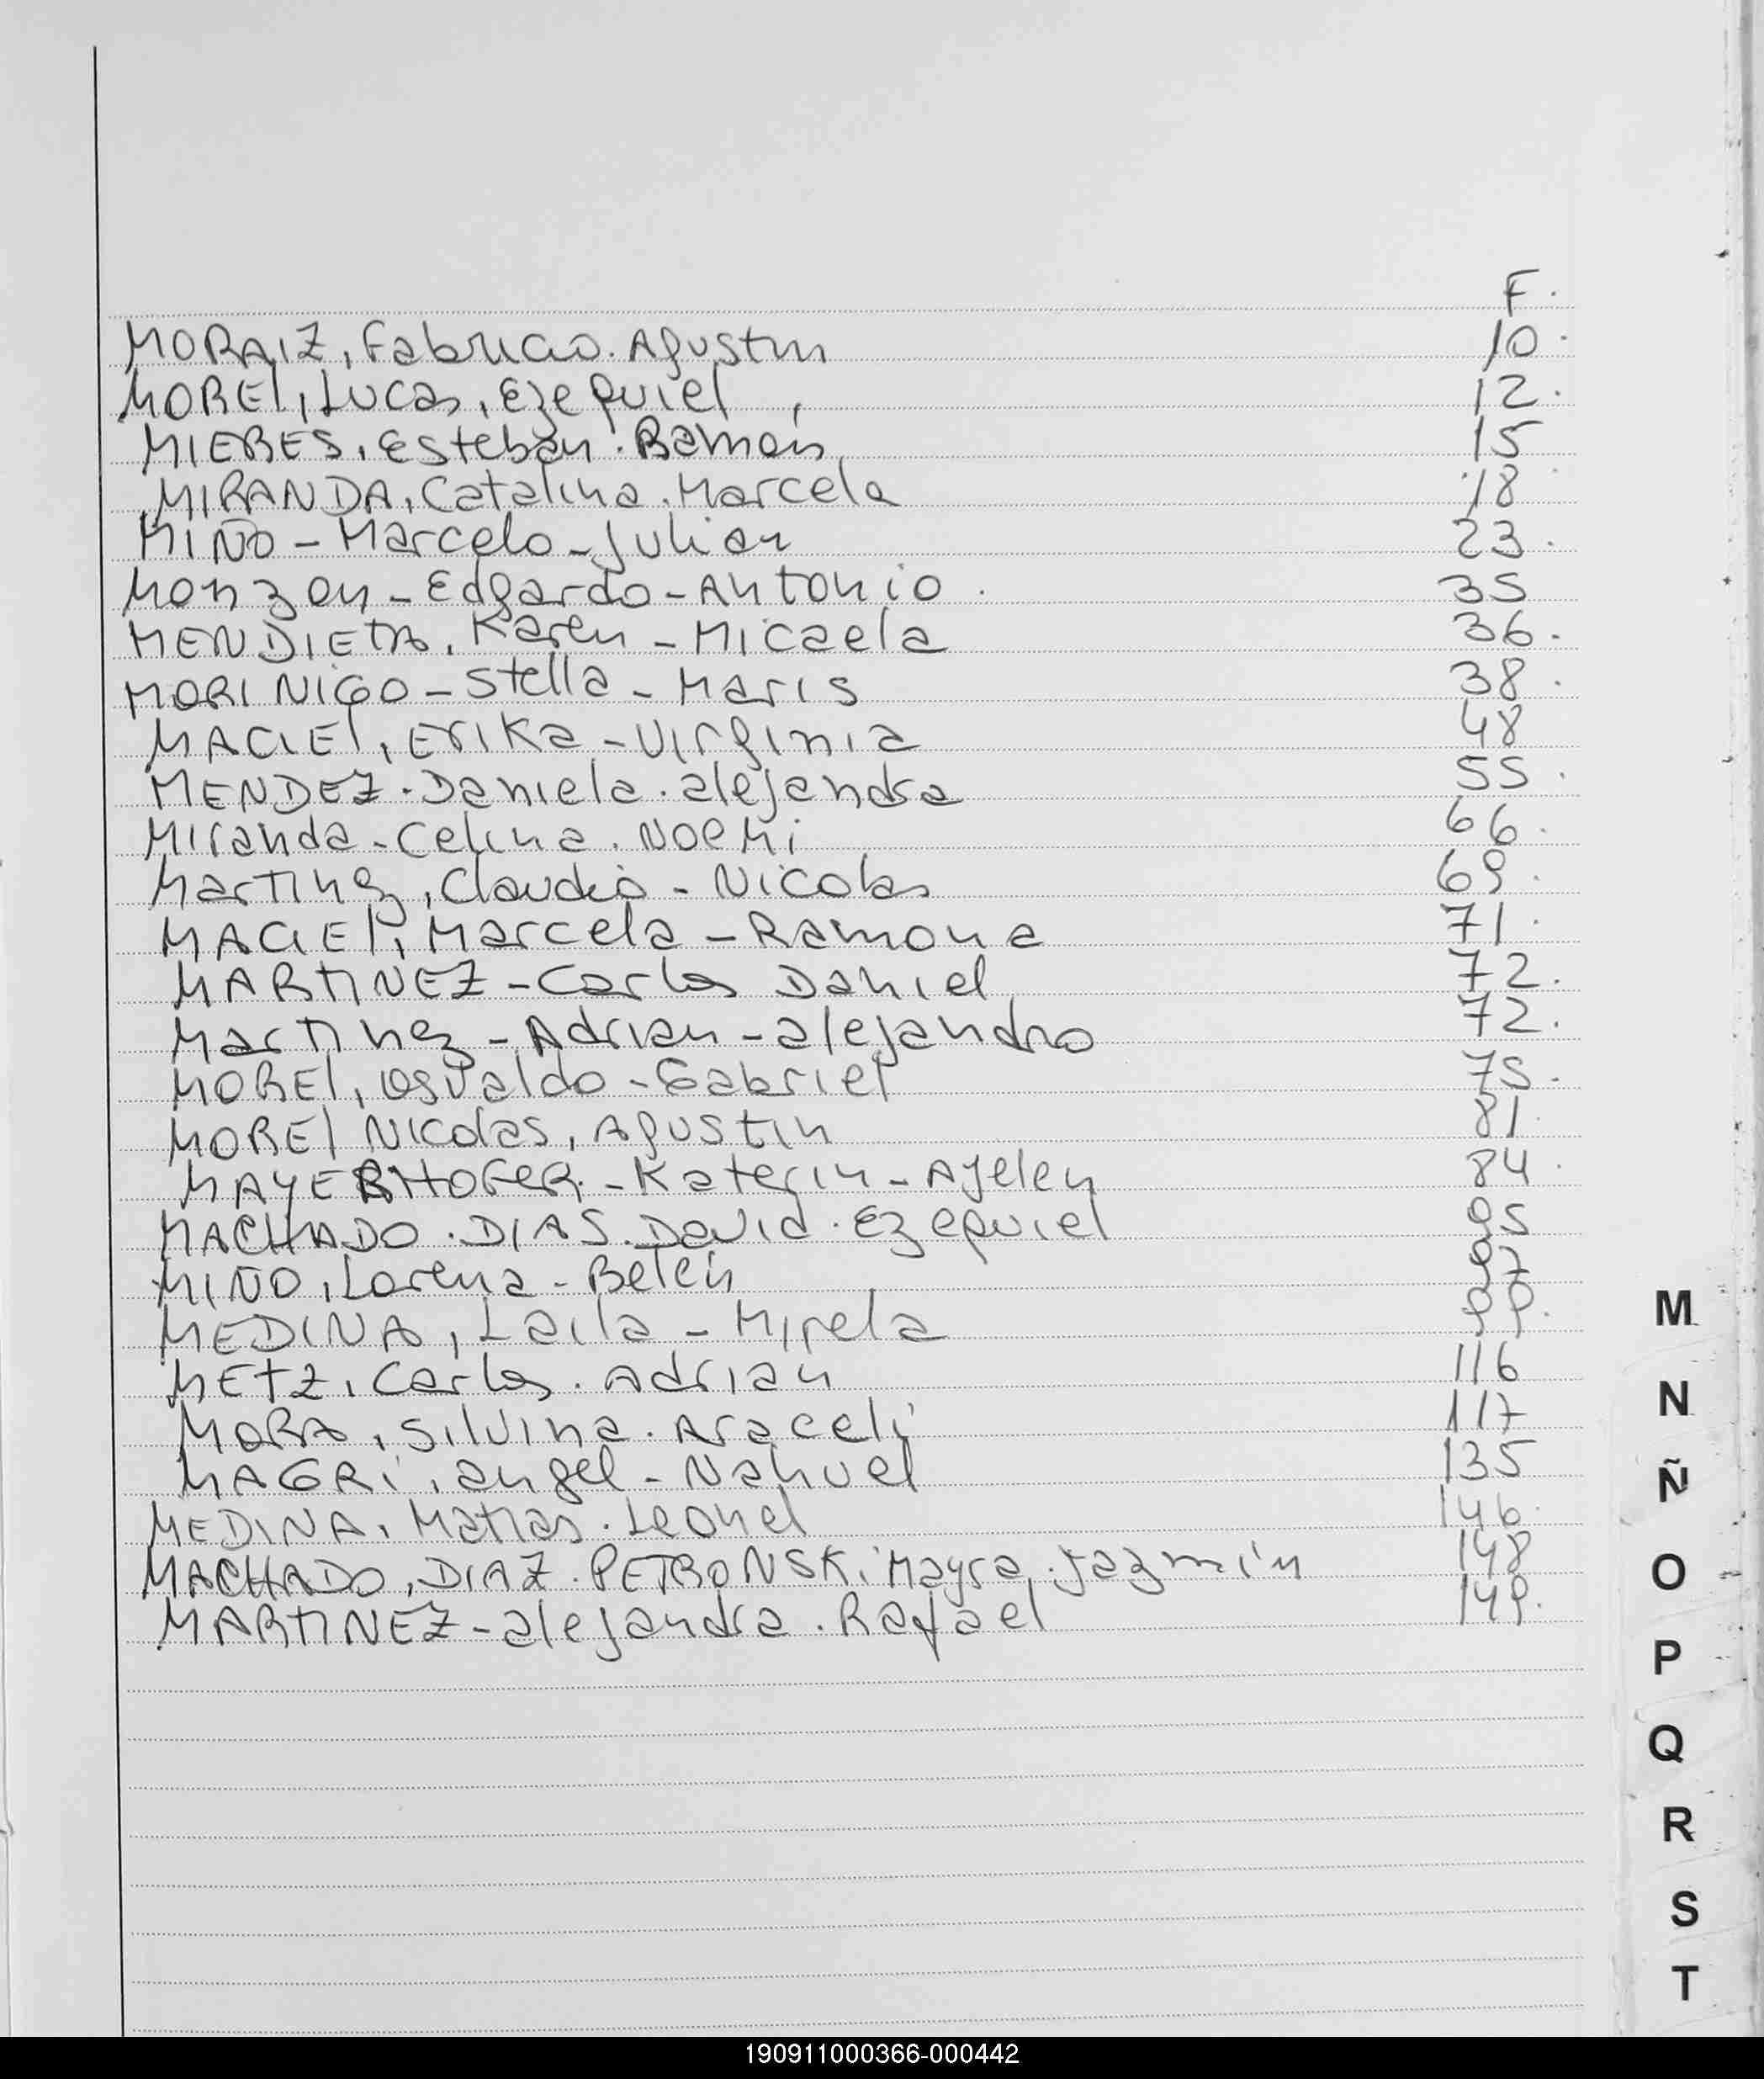 F.
MORAIZ, Fabricio. Agustin 10.
MOREl, Lucas, Ezequiel, 12.
MIERES, Esteban. Ramón 15
MIRANDA, Catalina. Marcela 18
MIÑO - Marcelo - Julian 23.
Monzon - Edgardo - Antonio. 35
MENDIETA, Karen - Micaela 36.
MORINIGO - Stella - Maris 38.
MACIEl, Erika - Virginia 48
MENDEZ. Daniela. alejandra 55.
Miranda - Celina. Noemi 66.
Martinez, Claudio - Nicolas 69.
MACIEl, Marcela - Ramona 71.
MARTINEZ - Carlos Daniel 72.
Martinez - Adrian - alejandro 72.
MOREl, Osvaldo - Gabriel 75.
MOREl Nicolas, Agustin 81.
MAYERHOFER. - Katerin - Ayelen 84.
MACHADO. DIAS. David. Ezequiel 95
MIÑO, Lorena - Belén 97
MEDINA, Laila - Mirela 99.
METZ, Carlos. Adrian 116
MORA, Silvina. Araceli 117
MAGRi, angel - Nahuel 135
MEDINA, Matias. Leonel 146.
MACHADO, DIAZ. PETRONSKi Mayra. Jazmín 148
MARTINEZ - alejandra. Rafael 149.
M
N
Ñ
O
P
Q
R
S
T
190911000366-000442